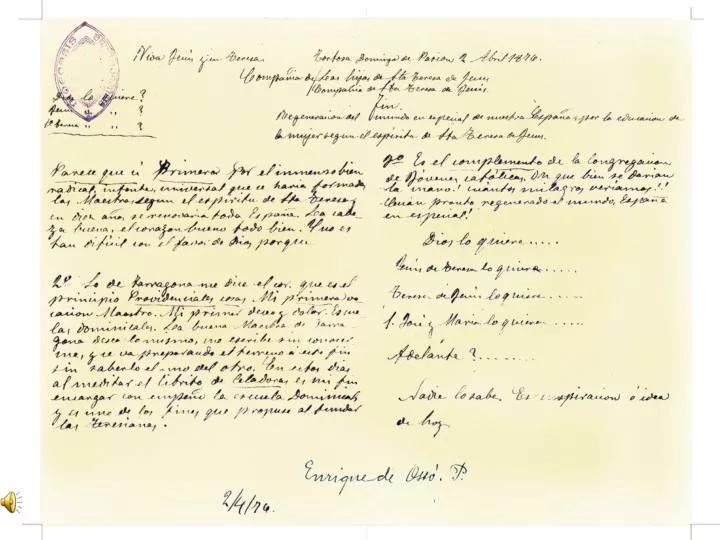 Viva Jesús y su Teresa. Tortosa Domingo de Pasión 2 Abril 1876.
Compañía de las hijas de Sta Teresa de Jesús
Compañía de Sta Teresa de Jesús.
Dios lo quiere?
Jesús " " ?
Sta Teresa " " ?
Fin.
Regeneración del mundo en especial de nuestra España, por la educación de
la mujer segun el espíritu de Sta Teresa de Jesús.
Parece que sí Primera Por el inmenso bien
radical, infinito, universal que se haría formando
las Maestras segun el espíritu de Sta Teresa y
en diez años se renovaría toda España. La cabe-
za buena, el corazon bueno todo bien. Y no es
tan dificil con el favor de Dios porque
2º Lo de Tarragona me dice el cor. que es el
principio Providenciales cosas. Mi primera vo-
cación Maestro. Mi primer deseo y dolor. Escue-
las dominicales. La buena Maestra de Tarra-
gona desea lo mismo, me escribe sin conocer-
me, y se va preparando el terreno a este fin
sin saberlo el uno del otro. En estos dias
al meditar el librito de Celadoras es mi fin
encargar con empeño la escuela Dominical,
y es uno de los fines que propuse al fundar
las Teresianas.
Es el complemento de la Congregación
de Jóvenes católicas. Oh que bien se darian
la mano! cuántos milagros veriamos!!
Cuán pronto regenerado el mundo, España
en especial!
Dios lo quiere.....
Jesús de Teresa lo quiere.....
Teresa de Jesús lo quiere.....
S. José y María lo quieren.....
Adelante?........
Nadie lo sabe. Es inspiración ó idea
de hoy
Enrique de Ossó. P.
2/4/76.